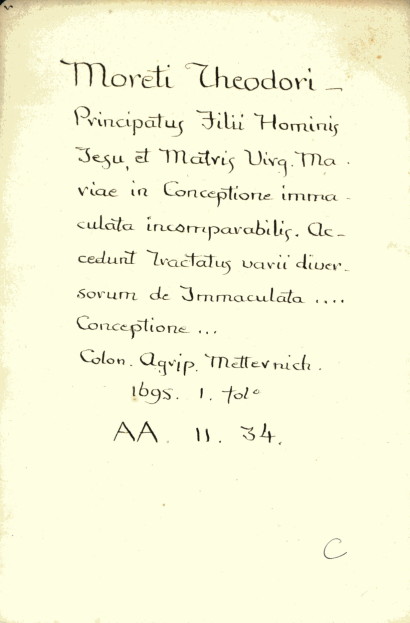 Moreti Theodori –
Principatus Filii Hominis
Jesu, et Matris Virg. Ma-
riae in Conceptione imma-
culata incomparabilis. Ac-
cedunt Tractatus varii diver-
sorum de Immaculata ....
Conceptione ...
Colon. Agrip. Metternich.
1695. 1. folº
AA. 11. 34.
C